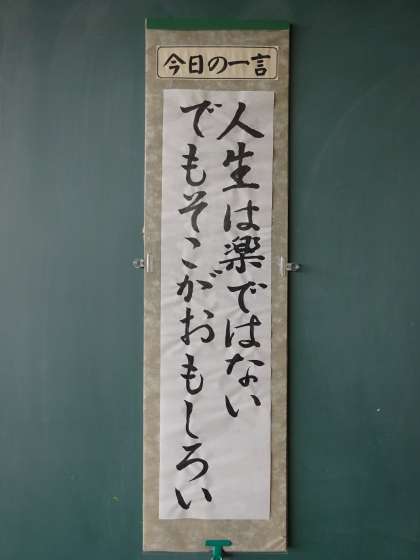 今日の一言
人生は楽ではない
でもそこがおもしろい